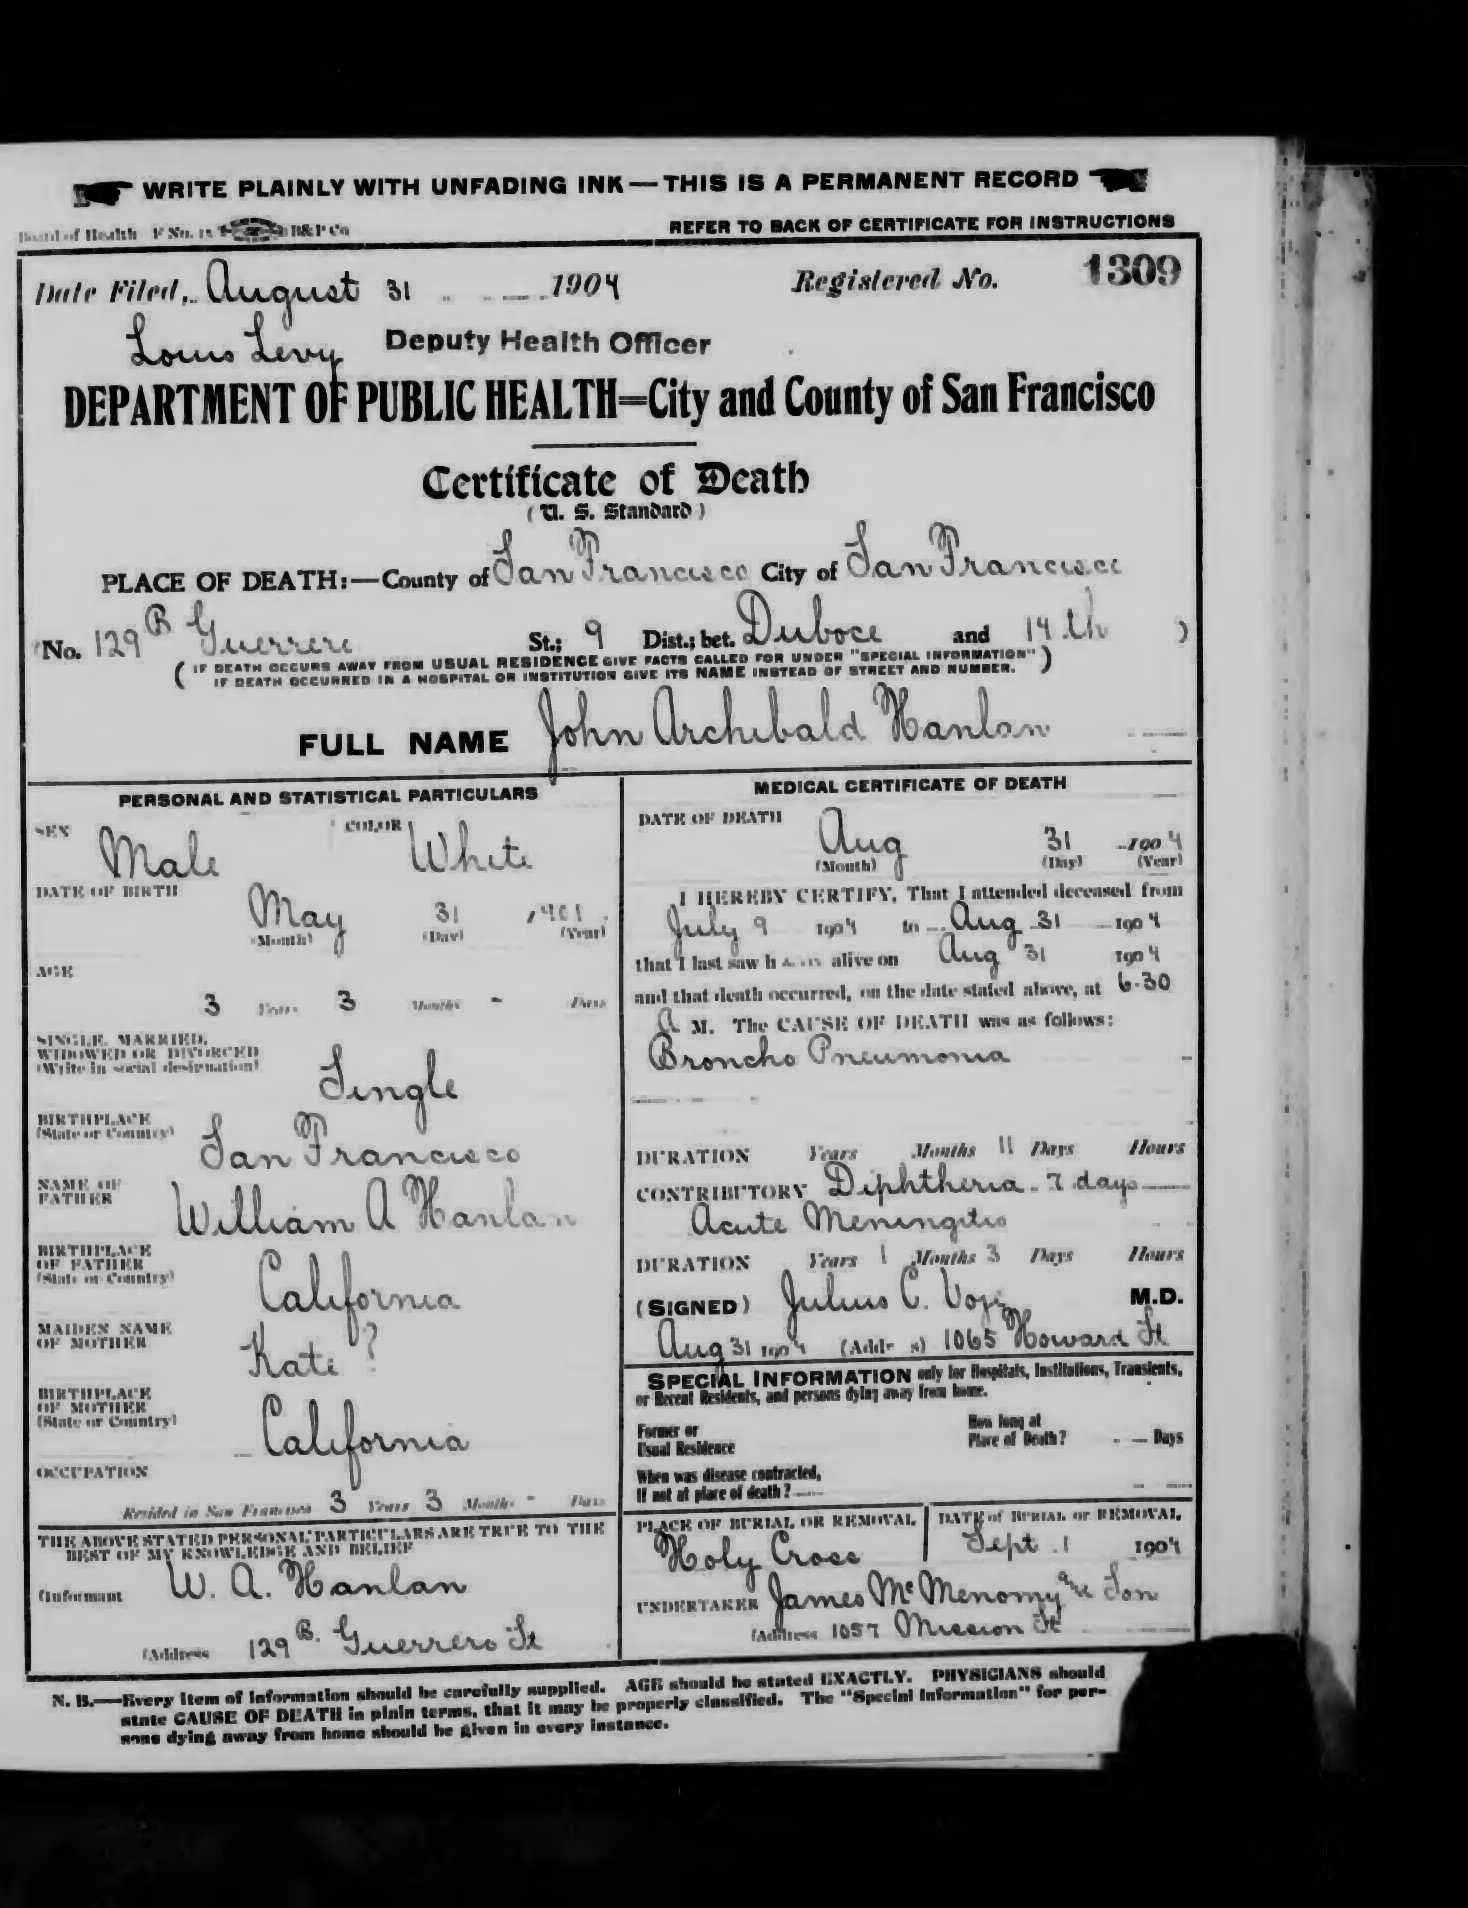 WRITE PLAINLY WITH UNFADING INK — THIS IS A PERMANENT RECORD
Board of Health F No. 15 B&P Co
REFER TO BACK OF CERTIFICATE FOR INSTRUCTIONS
Date Filed, August 31 1904 Registered No. 1309
Louis Levy Deputy Health Officer
DEPARTMENT OF PUBLIC HEALTH=City and County of San Francisco
Certificate of Death
(U. S. Standard)
PLACE OF DEATH:—County of San Francisco City of San Francisco
(No. 129 B Guerrero St.; 9 Dist.; bet. Duboce and 14th )
( IF DEATH OCCURS AWAY FROM USUAL RESIDENCE GIVE FACTS CALLED FOR UNDER "SPECIAL INFORMATION" )
IF DEATH OCCURRED IN A HOSPITAL OR INSTITUTION GIVE ITS NAME INSTEAD OF STREET AND NUMBER.
FULL NAME John Archibald Hanlan
PERSONAL AND STATISTICAL PARTICULARS
SEX Male COLOR White
DATE OF BIRTH
May 31 1901
(Month) (Day) (Year)
AGE
3 Years 3 Months - Days
SINGLE, MARRIED,
WIDOWED OR DIVORCED
(Write in social designation)
Single
BIRTHPLACE
(State or Country)
San Francisco
NAME OF
FATHER
William A Hanlan
BIRTHPLACE
OF FATHER
(State or Country)
California
MAIDEN NAME
OF MOTHER
Kate ?
BIRTHPLACE
OF MOTHER
(State or Country)
California
OCCUPATION
Resided in San Francisco 3 Years 3 Months - Days
THE ABOVE STATED PERSONAL PARTICULARS ARE TRUE TO THE
BEST OF MY KNOWLEDGE AND BELIEF
(Informant W. A. Hanlan
(Address 129 B. Guerrero St
MEDICAL CERTIFICATE OF DEATH
DATE OF DEATH
Aug 31 1904
(Month) (Day) (Year)
I HEREBY CERTIFY, That I attended deceased from
July 9 1904 to Aug 31 1904
that I last saw h alive on Aug 31 1904
and that death occurred, on the date stated above, at 6.30
A M. The CAUSE OF DEATH was as follows:
Broncho Pneumonia
DURATION Years Months 11 Days Hours
CONTRIBUTORY Diphtheria - 7 days
Acute Meningitis
DURATION Years 1 Months 3 Days Hours
(SIGNED) Julius C. M.D.
Aug 31 1904 (Address) 1065 Howard St
SPECIAL INFORMATION only for Hospitals, Institutions, Transients,
or Recent Residents, and persons dying away from home.
Former or
Usual Residence
How long at
Place of Death? Days
When was disease contracted,
If not at place of death?
PLACE OF BURIAL OR REMOVAL
Holy Cross
DATE of BURIAL or REMOVAL
Sept. 1 1904
UNDERTAKER James McMenomy and Son
(Address 1057 Mission St
N. B.—Every item of information should be carefully supplied. AGE should be stated EXACTLY. PHYSICIANS should
state CAUSE OF DEATH in plain terms, that it may be properly classified. The "Special Information" for per-
sons dying away from home should be given in every instance.